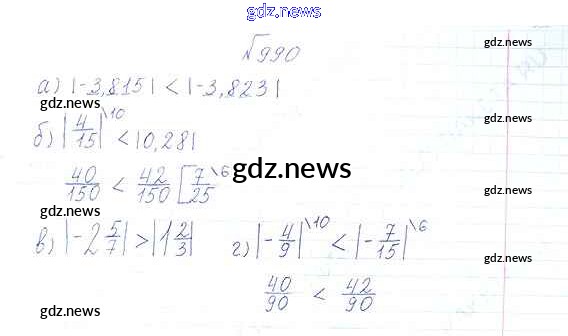 gdz.news
№990
gdz.news
а) |-3,815| < |-3,823|
gdz.news
б) |4/15|\10 < |0,28|
gdz.news
40/150 < 42/150 [7/25\6
gdz.news
gdz.news
в) |-2 5/7| > |1 2/3| г) |-4/9|\10 < |-7/15|\6
gdz.news
40/90 < 42/90
gdz.news
gdz.news